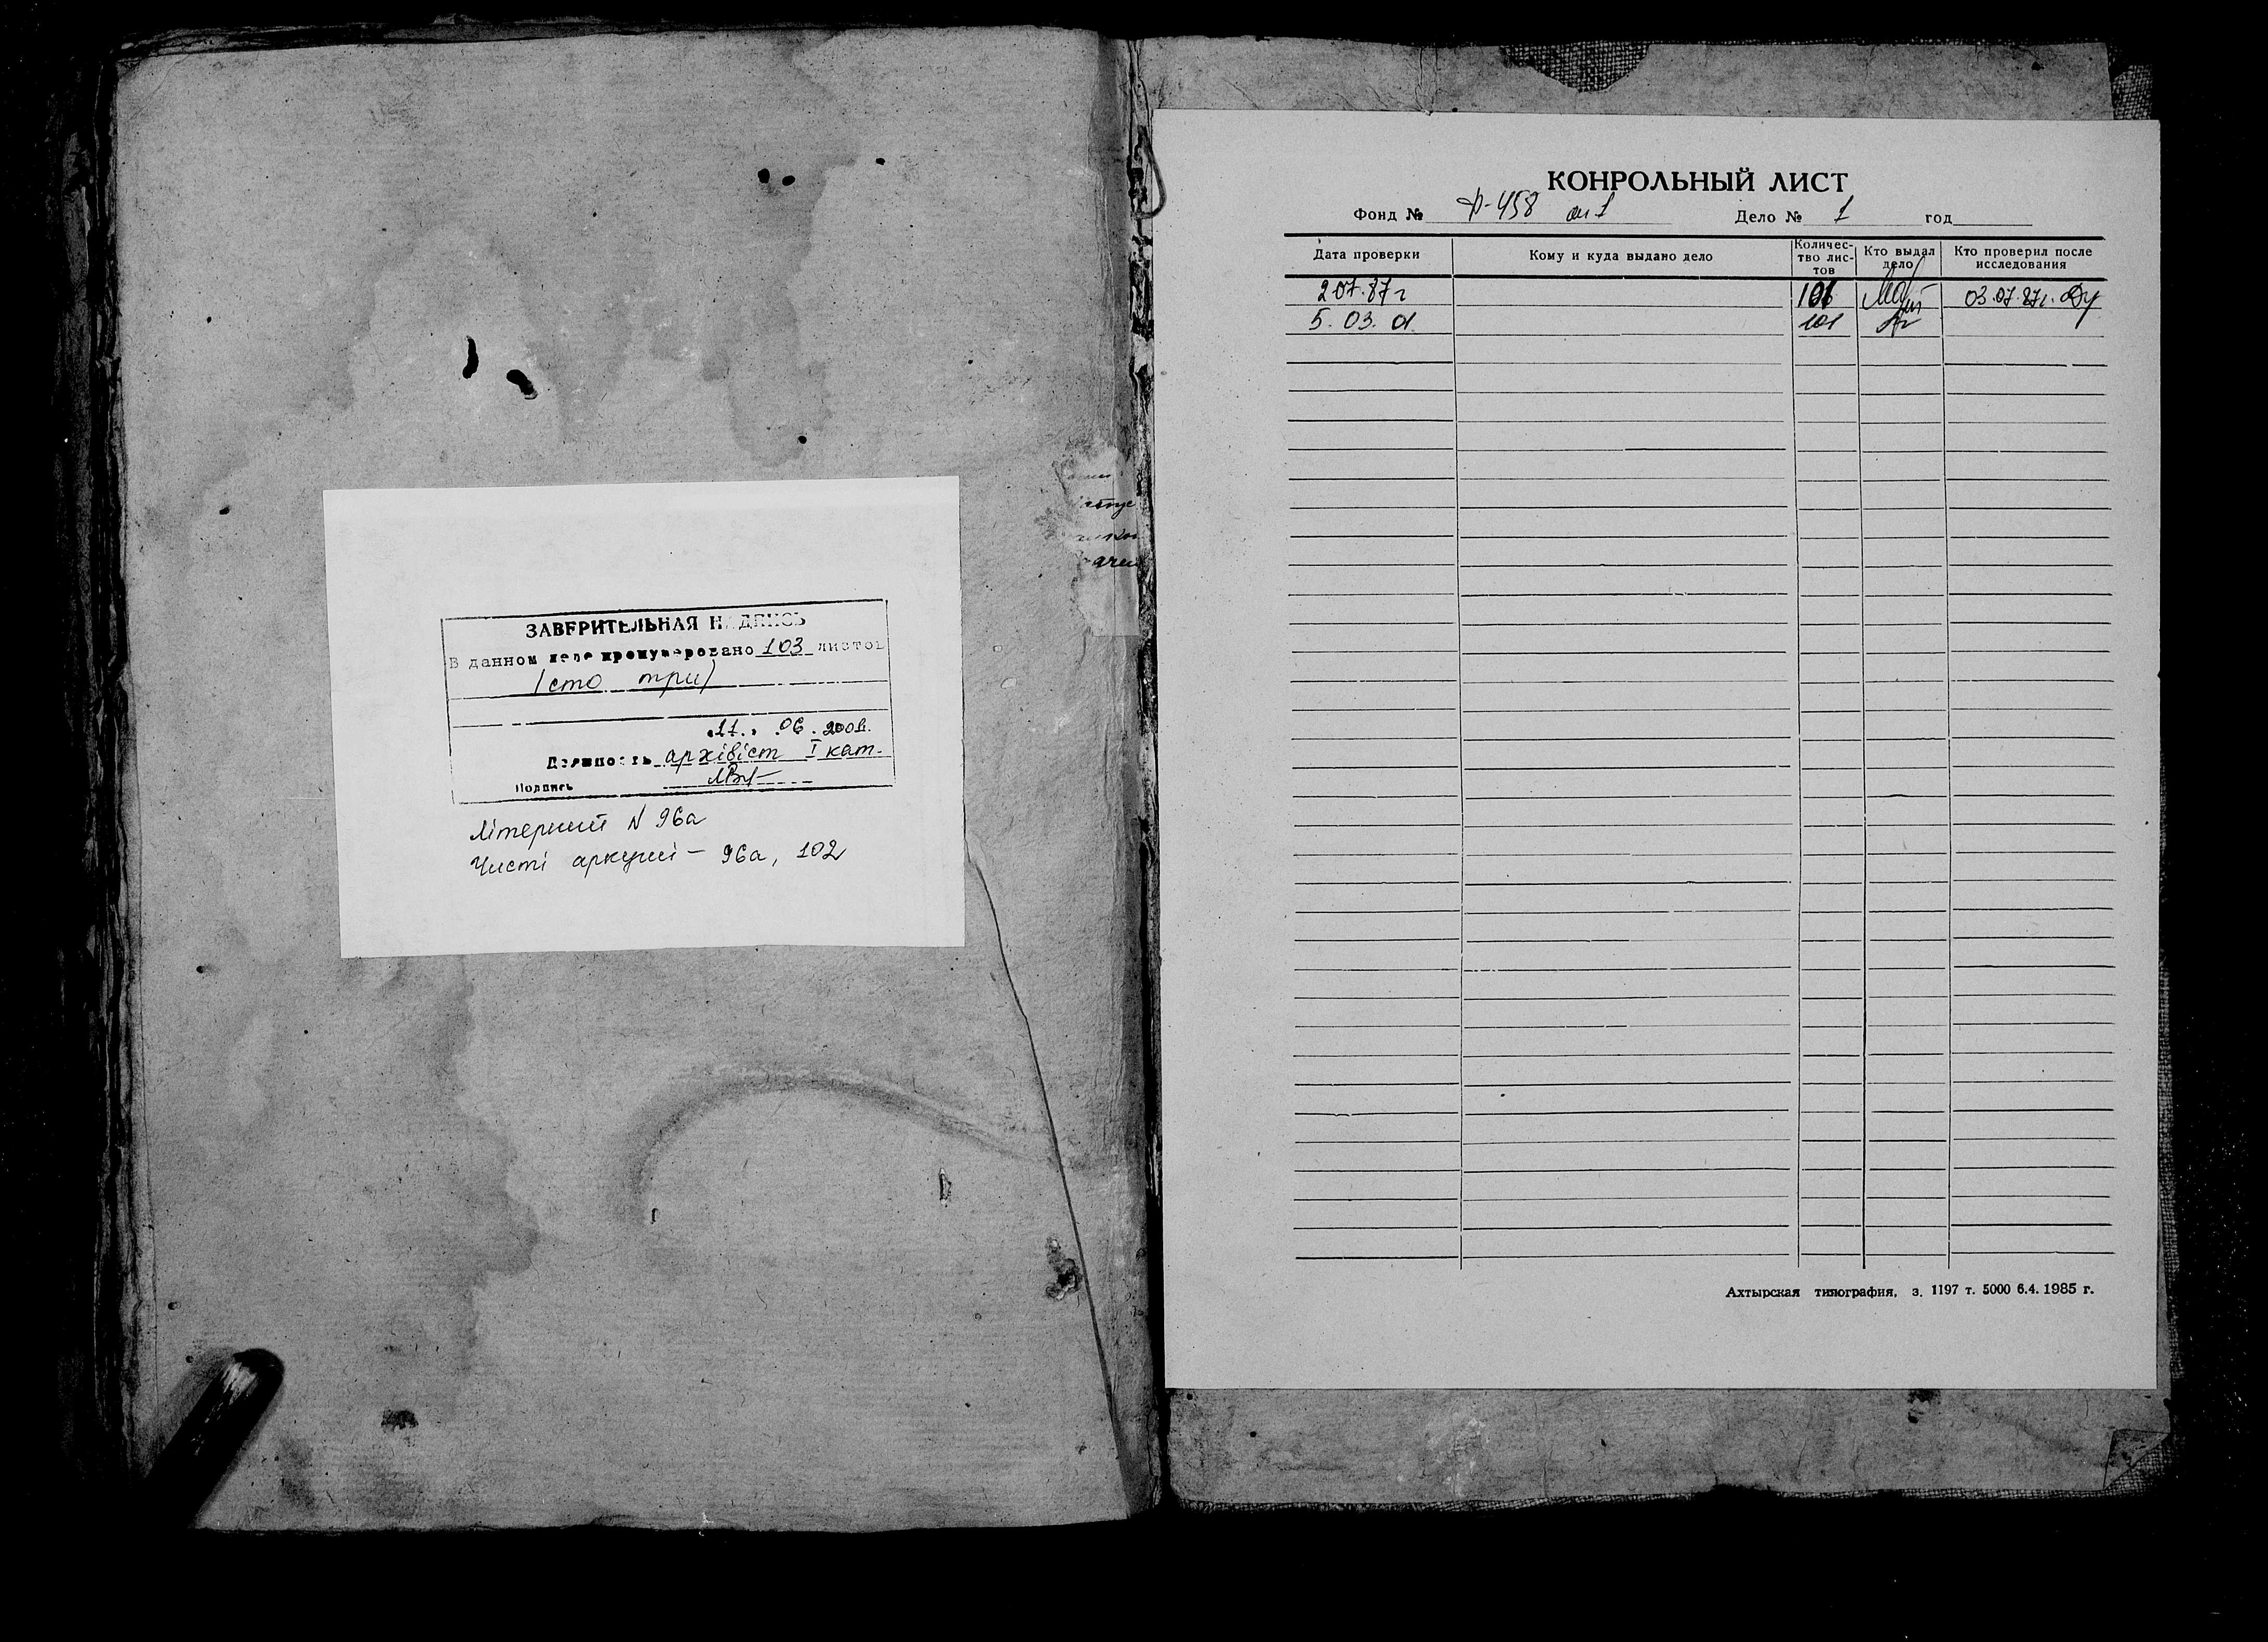 ЗАВЕРИТЕЛЬНАЯ НАДПИСЬ
В данном деле пронумеровано 103 листов
(сто три)
06.
Должность архівіст I кат.
Подпись
літерний N 96а
Чисті аркуші – 96а, 102
КОНРОЛЬНЫЙ ЛИСТ
Фонд № Р-458 оп 1 Дело № 1 год
Дата проверки Кому и куда выдано дело Количес-тво лис-тов Кто выдал дело Кто проверил после исследования
2 07.87г 03.07.87г.
5. 03. 01 101
Ахтырская типография, з. 1197 т. 5000 6.4. 1985 г.